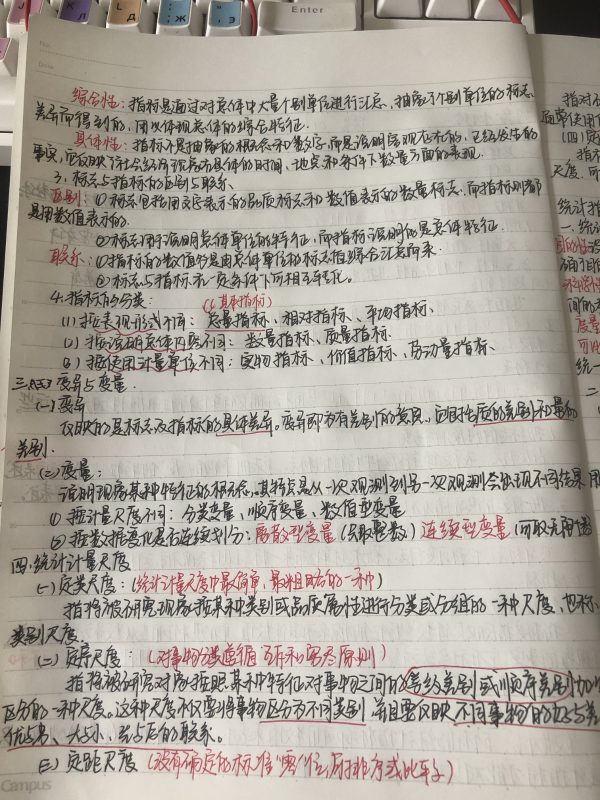 Enter
综合性：指标是通过对总体中大量个别单位进行汇总，抽离了个别单位的标志
差异而得到的，用以体现总体的综合特征.
具体性：指标不是抽象的概念和数字，而是说明客观存在的、已经发生的
事实，它反映了社会经济现象在具体的时间、地点和条件下数量方面的表现.
3. 标志与指标的区别与联系
区别：①标志包括用文字表示的品质标志和数值表示的数量标志，而指标则都
是用数值表示的.
②标志用于说明总体单位的特征，而指标说明的是总体特征.
联系：①指标的数值均是由总体单位的标志值综合汇总而来.
②标志与指标在一定条件下可相互转化。
4.指标的分类：（基本指标）
(1) 按表现形式不同：总量指标、相对指标、平均指标、
(2) 按说明总体内容不同：数量指标、质量指标.
(3) 按使用计量单位不同：实物指标、价值指标、劳动量指标
三.变异与变量.
(一)变异
反映的是标志及指标的具体差异。变异即为有差别的意思，包括性质的差别和量的
差别.
(二)变量：
说明现象某种特征的概念，其特点是从一次观测到另一次观测会出现不同结果
① 按计量尺度不同：分类变量、顺序变量、数值型变量
② 按数据变化是否连续划分：离散型变量（只取整数）连续型变量（可取无限数值
四.统计计量尺度
(一)定类尺度：（统计计量尺度中最简单、最粗略的一种）
指将被研究现象按某种类别或品质属性进行分类或分组的一种尺度，也称
类别尺度.
(二)定序尺度：（对事物分类遵循互斥和穷尽原则）
指将被研究对象按照某种特征对事物之间的等级差别或顺序差别加以
区分的一种尺度。这种尺度不仅要将事物区分为不同类别，并且要反映不同事物的
优与劣、大与小、先与后的联系。
(三)定距尺度（没有确定的标准“零”位，用于排序或比较）
Campus